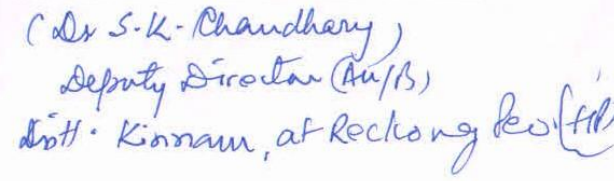 (Dr S.K. Chaudhary)
Deputy Director (AH/B)
Distt. Kinnaur, at Reckong Peo. (HP